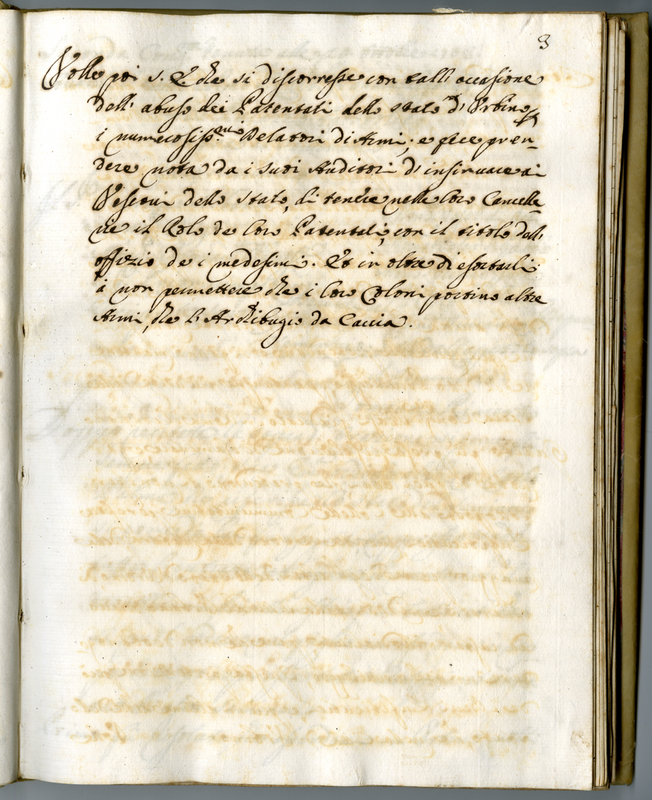 3
Volle poi S. E. che si discorresse con tall' occasione
dell' abuso dei Patentati dello Stato d' Urbino
i numerosiss.mi Delatori di Armi, e fece pren-
dere nota da i suoi Auditori d' insinuare ai
Vescovi dello Stato, di tenere nelle loro Cancelle-
rie il Rolo de loro Patentati, con il titolo dell'
offizio de i medesimi. Et in oltre di esortarli
à non permettere che i loro Coloni portino altre
Armi, che l' Archibugio da Caccia.